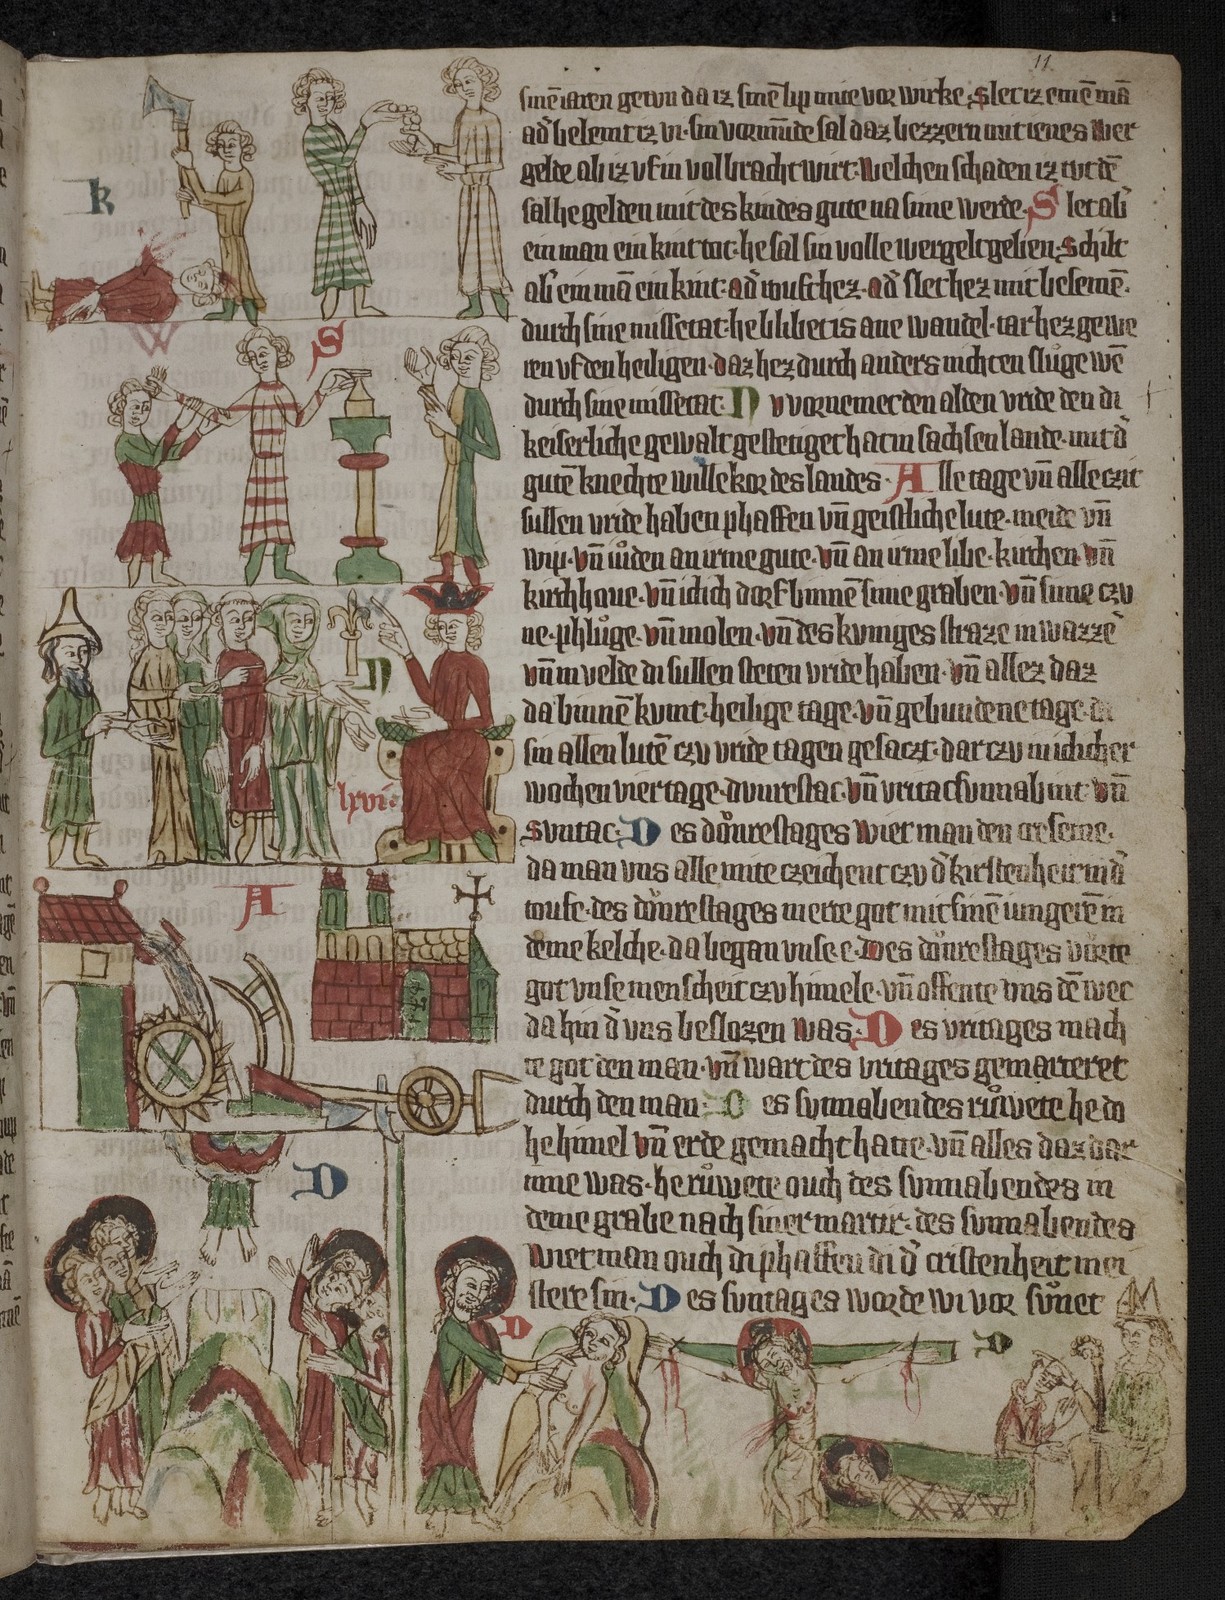 11
sinē iaren getvn da iz sinē lip mite vor wirke. Slet iz einē mā
ad' belemt iz vn. sin vormūde sal daz bezzern mit ienes wer
gelde ab iz vf in vol bracht wirt. Welchen schaden iz tvt dē
sal he gelden mit des kindes gute na sime werde. S let ab'
ein man ein kint tot. he sal sin volle wergelt geben. Schilt
ab' ein mā ein kint. ad' roufchez. ad' slet hez mit besemē.
durch sine missetat. he blibet is ane wandel. tar hez gewe
ren vf den heiligen. daz hez durch anders nicht en sluge wē
durch sine missetat. N v vornemet den alden vride den di
keiserliche gewalt gestetiget hat in sachsen lande. mit d'
gutē knechte willekor des landes. A lle tage vn̄ alle czit
sullen vride haben phaffen vn̄ geistliche lute. meide vn̄
wip. vn̄ iuden an irme gute. vn̄ an irme libe. kirchen. vn̄
kirchhoue. vn̄ iclich dorf binnē sime graben. vn̄ sime czv
ne. phlůge. vn̄ molen. vn̄ des kvniges straze in wazzē
vn̄ in velde di sullen steten vride haben. vn̄ allez daz
da binnē kvmt. heilige tage. vn̄ gebundene tage. di
sin allen lutē czv vride tagen gesaczt. dar czv in iclicher
wochen vier tage. dunrestac. vn̄ vritac sunnabint. vn̄
Svntac. D es dōnrestages wiet man den creseme.
da man vns alle mite czeichent czv d' kirstenheit in d'
toufe. des dōnrestages merte got mit sinē iungerē in
deme kelche. da began vnse e. Des dōnrestages vůrte
got vnse menscheit czv himele. vn̄ offente vns dē wec
da hin d' vns beslozen was. D es vritages mach
te got den man. vn̄ wart des vritages gemarteret
durch den man. D es svnnabendes růwete he do
he himel vn̄ erde gemacht hatte. vn̄ alles daz dar
inne was. he růwete ouch des svnnabendes in
deme grabe nach siner martir. des svnnabendes
wiet man ouch di phaffen di d' cristenheit mei
stere sin. D es svntages worde wi vor sůnet
K
W
S
N
lxvi.
A
D
D
D